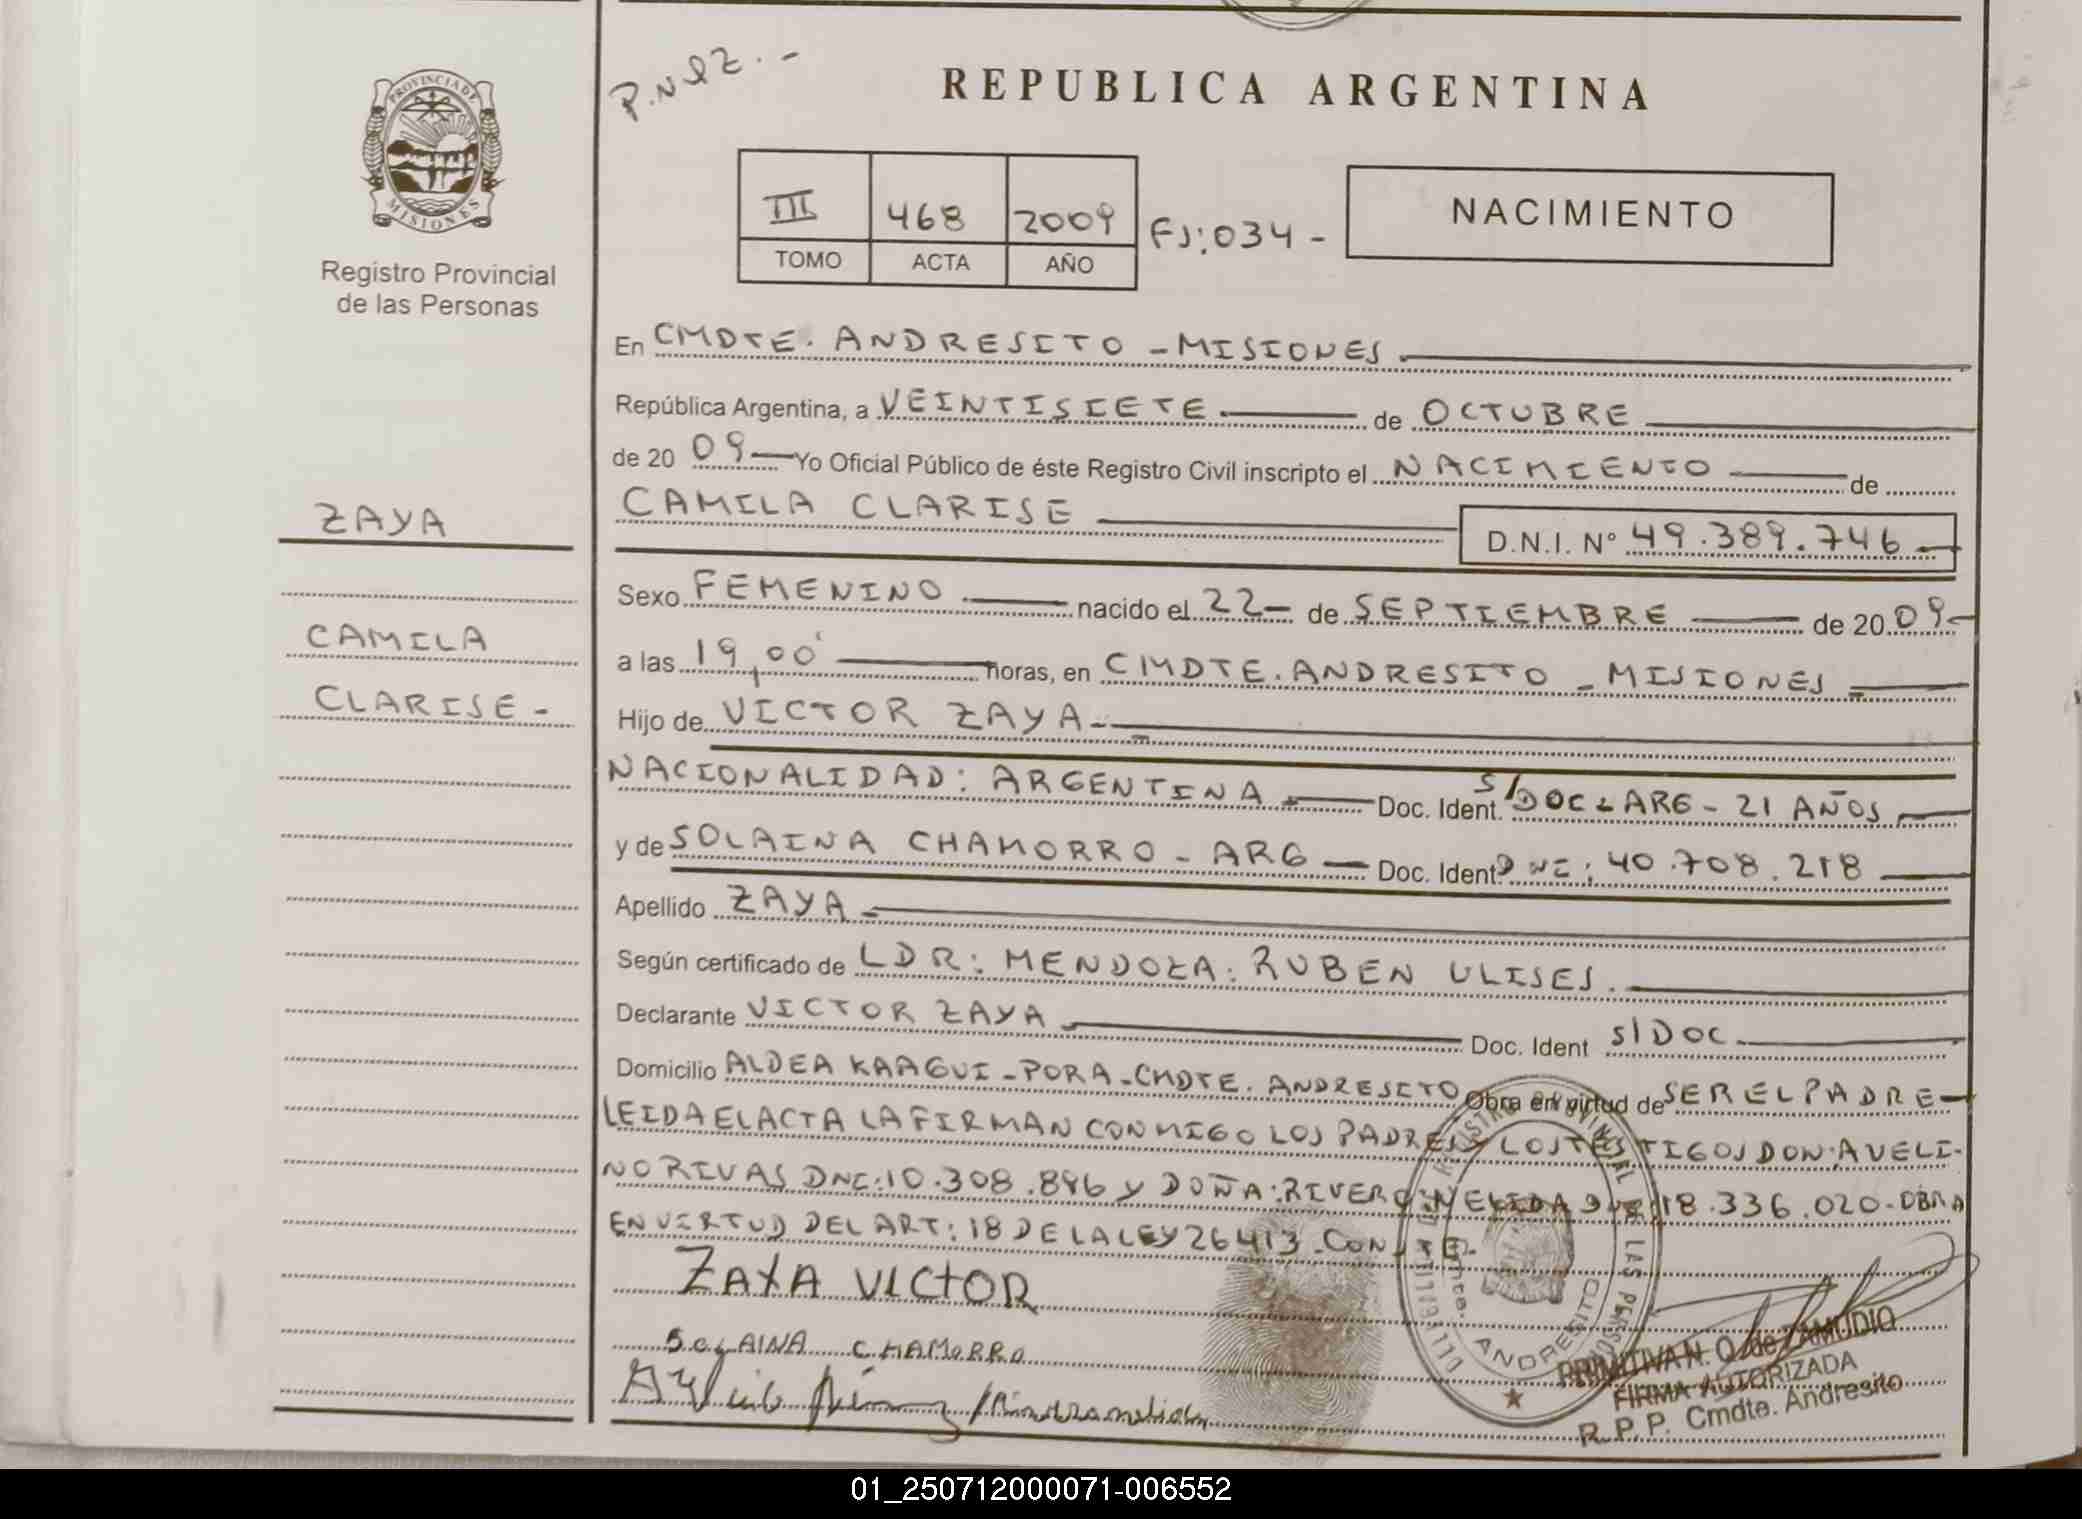 P.Nº2.-
REPUBLICA ARGENTINA
PROVINCIA DE MISIONES
Registro Provincial
de las Personas
III 468 2009 FJ:034-
TOMO ACTA AÑO
NACIMIENTO
ZAYA
CAMILA
CLARISE-
En CMDTE. ANDRESITO - MISIONES
República Argentina, a VEINTISIETE de OCTUBRE
de 20 09 Yo Oficial Público de éste Registro Civil inscripto el NACIMIENTO de
CAMILA CLARISE D.N.I. Nº 49.389.746
Sexo FEMENINO nacido el 22 de SEPTIEMBRE de 20 09
a las 19,00 horas, en CMDTE. ANDRESITO - MISIONES
Hijo de VICTOR ZAYA
NACIONALIDAD: ARGENTINA Doc. Ident. S/DOC ARG - 21 AÑOS
y de SOLAINA CHAMORRO - ARG Doc. Ident DNI: 40.708.218
Apellido ZAYA
Según certificado de LDR: MENDOZA: RUBEN ULISES.
Declarante VICTOR ZAYA Doc. Ident S/DOC
Domicilio ALDEA KAAGUI - PORA - CMDTE. ANDRESITO Obra en virtud de SER EL PADRE
LEIDA EL ACTA LA FIRMAN CONMIGO LOS PADRES Y LOS TESTIGOS DON: AVELI-
NO RIVAS DNI: 10.308.896 Y DOÑA: RIVERO NELIDA DNI: 18.336.020 - OBRA
EN VIRTUD DEL ART: 18 DE LA LEY 26413 - CONSTE-
ZAYA VICTOR
SOLAINA CHAMORRO
REGISTRO PROVINCIAL DE LAS PERSONAS
Cmte. ANDRESITO
PRIMITIVA N. O. de ZAMUDIO
FIRMA AUTORIZADA
R. P. P. Cmdte. Andresito
01_250712000071-006552